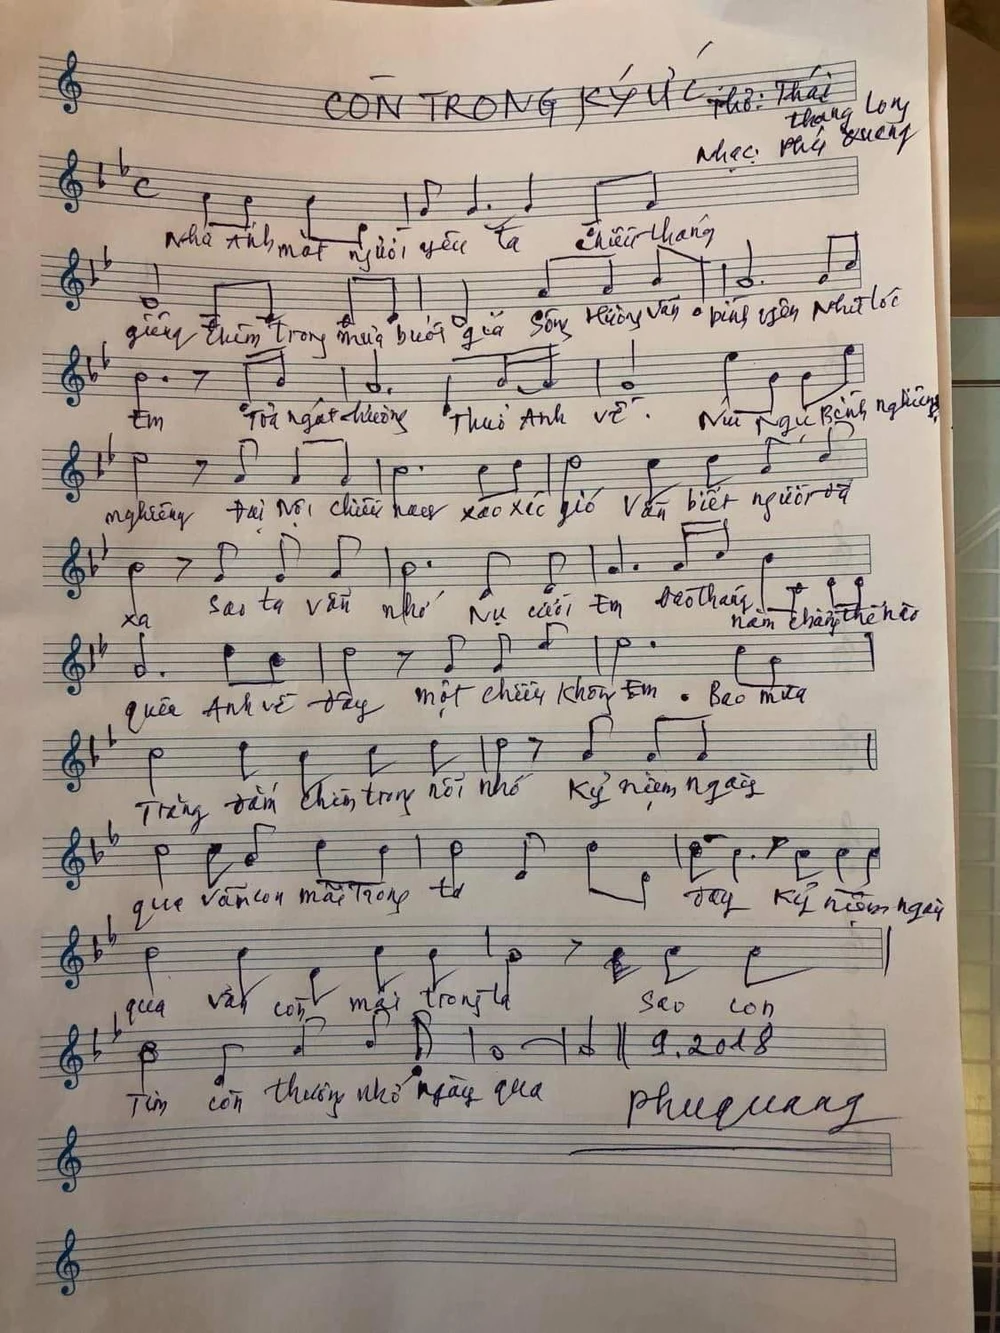 CÒN TRONG KÝ ỨC
Thơ: Thái
thăng Long
Nhạc: Phú Quang
C
Nhã Anh mất người yêu ta chiều tháng
giêng chìm trong mưa buốt giá Sông Hương vẫn bình yên Như lốc
Em Toả ngát hương Thuở Anh về. Núi Ngự Bình nghiêng
nghiêng Đại Nội chiều nay xào xạc gió vẫn biết người đã
xa Sao ta vẫn nhớ Nụ cười Em Bao tháng năm chẳng thể nào
quên Anh về đây một chiều không Em. Bao mùa
Trăng đắm chìm trong nỗi nhớ Kỷ niệm ngày
qua vẫn còn mãi Trong ta đây Kỷ niệm ngày
qua vẫn còn mãi trong ta Sao con
Tim còn thương nhớ ngày qua 9.2018
phuquang